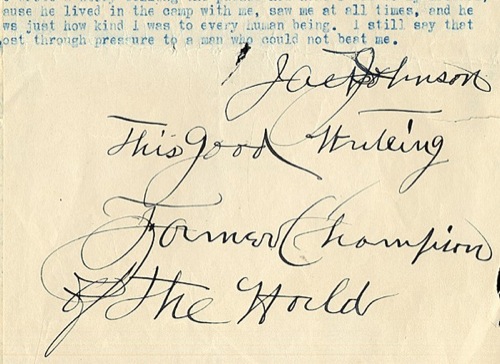 ause he lived in the camp with me, saw me at all times, and he
was just how kind I was to every human being. I still say that
ost through pressure to a man who could not beat me.
Jack Johnson
This good Writing
Former Champion
of The World